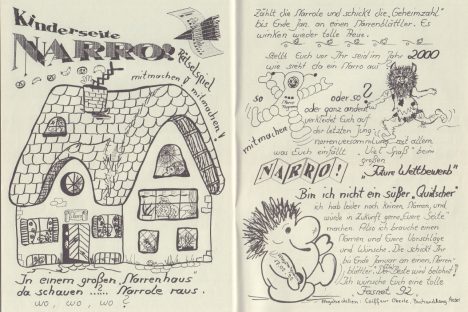 Kinderseite
NARRO!
Rätselspiel
mitmachen! mitmachen!
In einem großen „Narrenhaus"
da schauen ?..... Narrole raus.
wo, wo, wo?
Zählt die Narrole und schickt die „Geheimzahl"
bis Ende Jan. an einen Narrenblättler. Es
winken wieder tolle Preise.
Stellt Euch vor Ihr seid im Jahr 2000
wie sieht da ein Narro aus?
so
oder so?
oder ganz anders?
verkleidet Euch auf
der letzten Jung-
narrenversammlung mit allem
mitmachen
was Euch einfällt. Viel Spaß beim
großen
NARRO!
„Future Wettbewerb"
Bin ich nicht ein süßer „Quitscher"
ich hab leider noch keinen Namen, und
würde in Zukunft gerne „Eure Seite"
machen. Also ich brauche einen
Namen und Eure Vorschläge
und Wünsche. Die schickt Ihr
bis Ende Januar an einen „Narren-
blättler". Der Beste wird belohnt!
Ich wünsche Euch eine tolle
Fasnet 92.